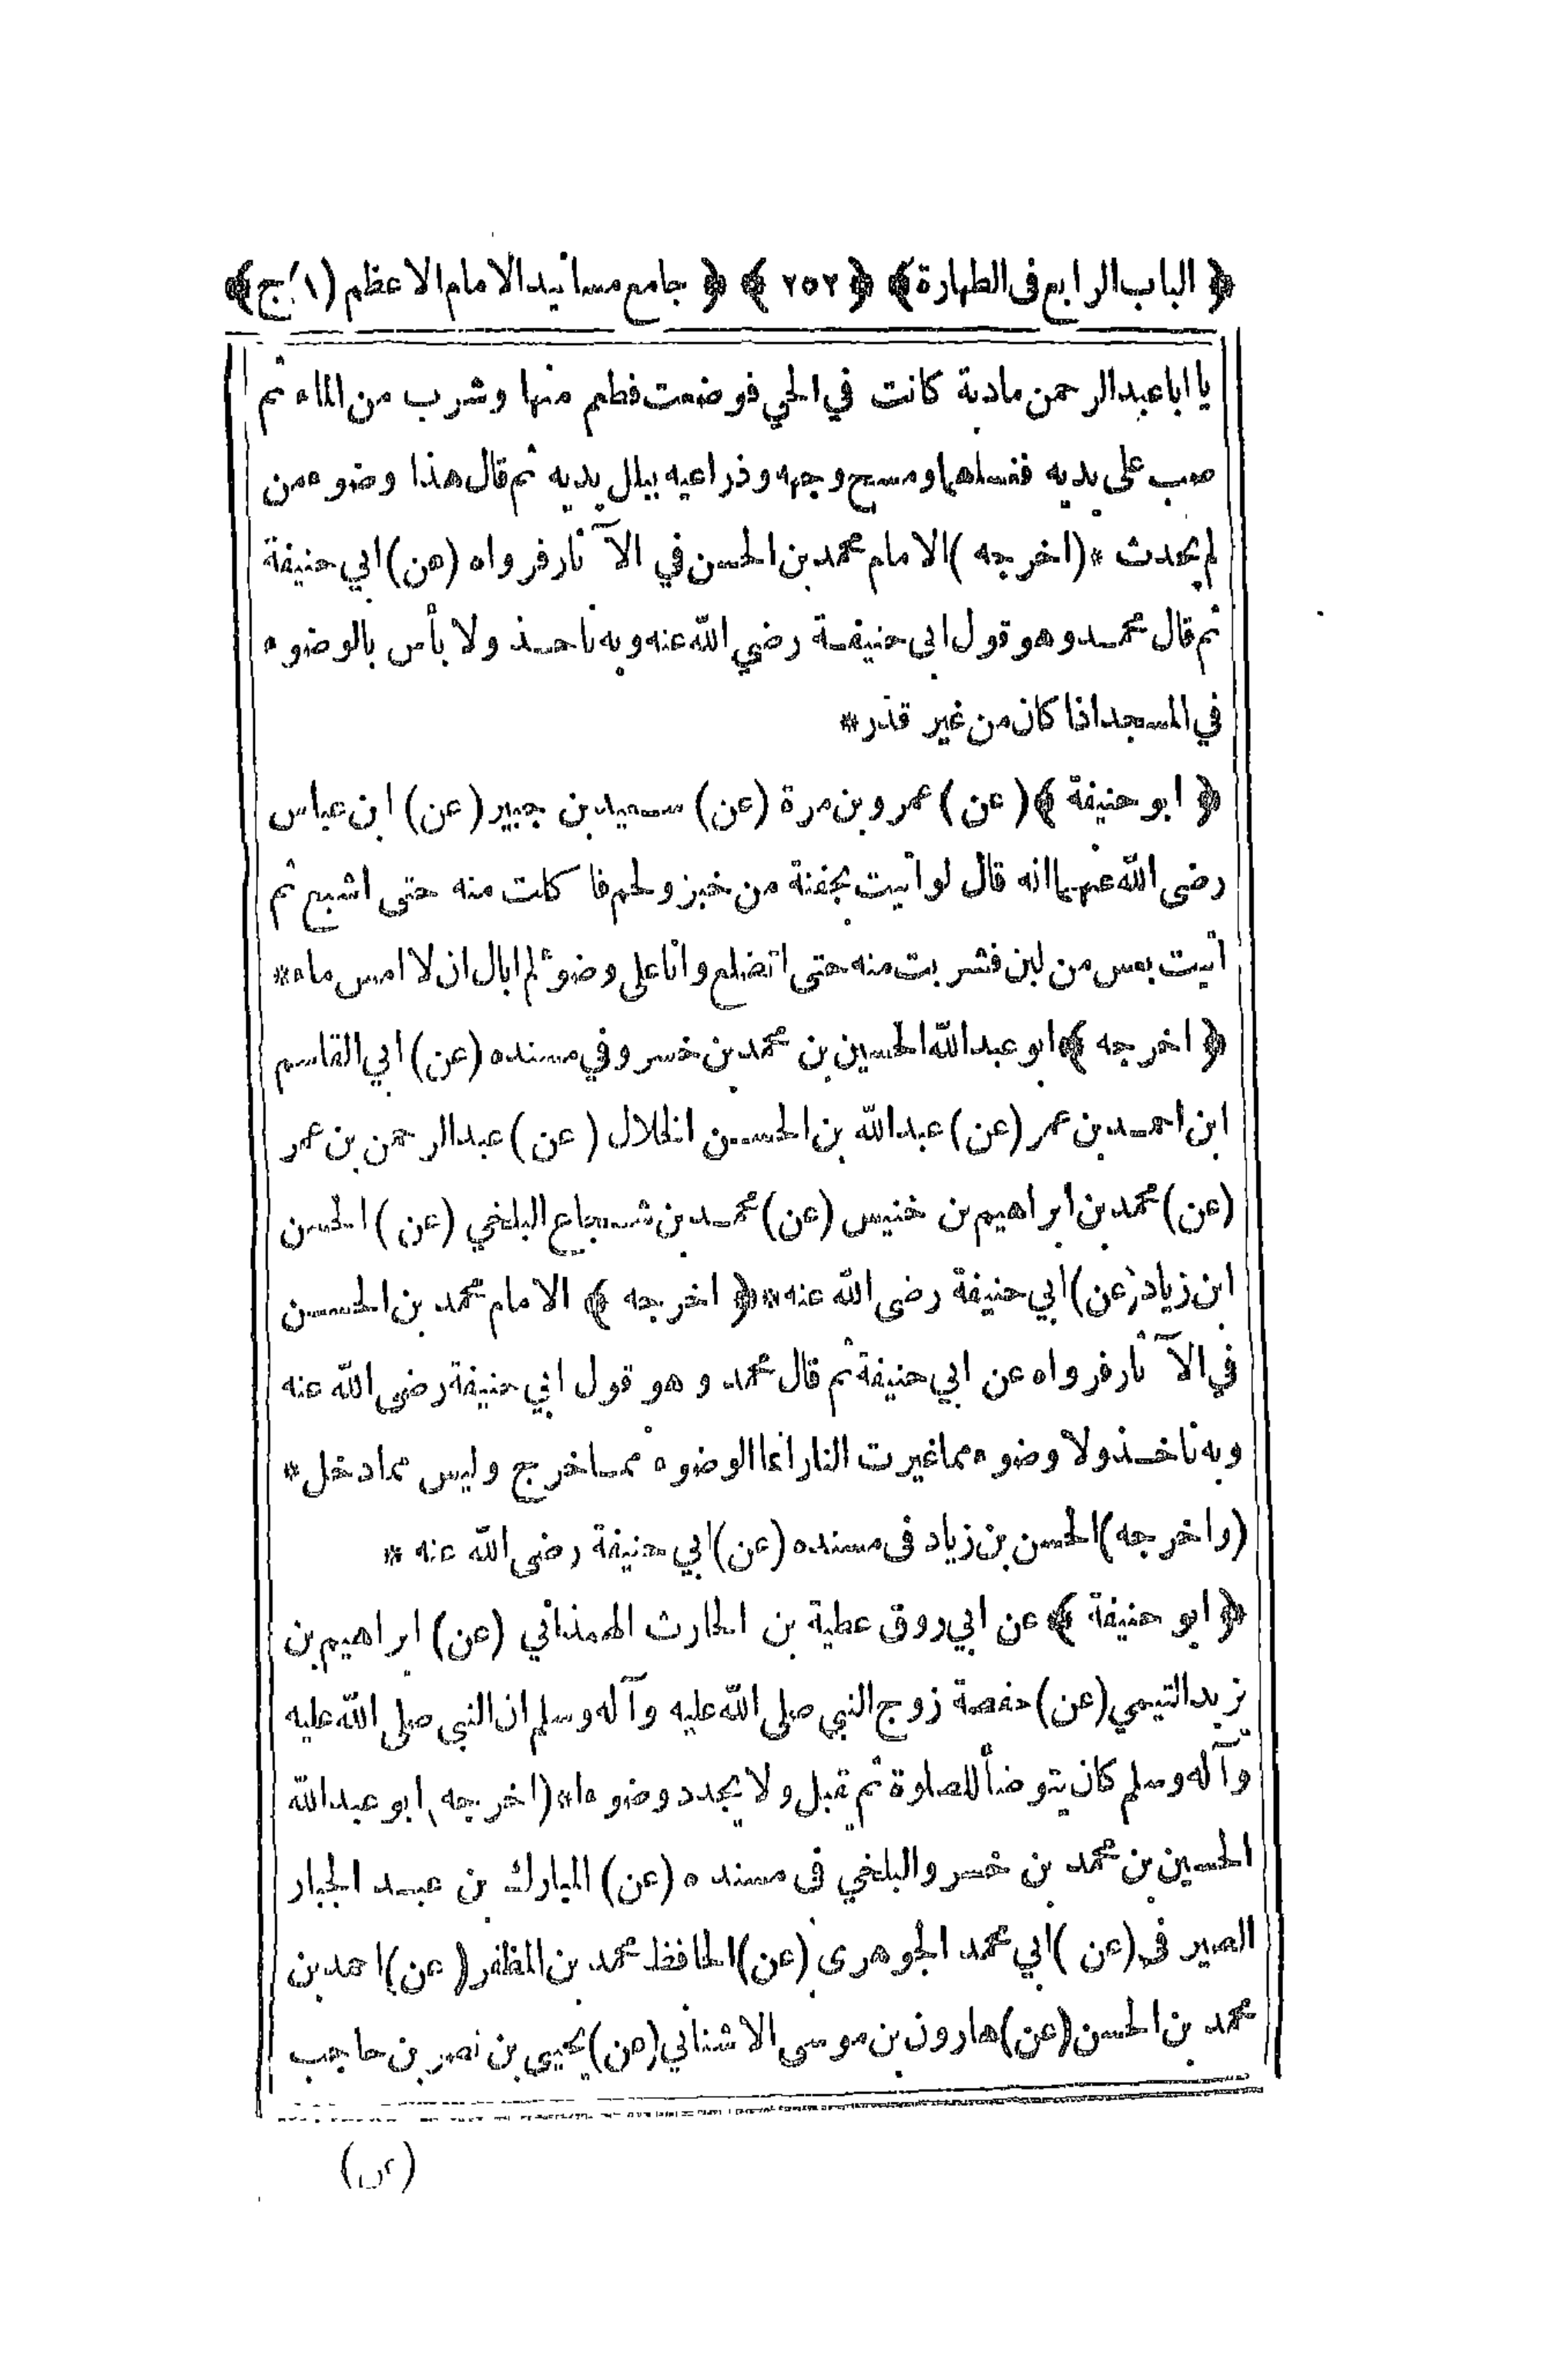 ﴿ الباب الرابع فى الطهارة ﴾ ﴿ ٢٥٢ ﴾ ﴿ جامع مسانيد الامام الاعظم (١/ج) ﴾
يا ابا عبدالرحمن مادبة كانت في الحي فوضعت فطعم منها وشرب من الماء ثم
صب على يديه فغسلهما ومسح وجهه وذراعيه ببلل يديه ثم قال هذا وضوء من
لم يحدث * (اخرجه) الامام محمد بن الحسن في الآثار فرواه (عن) ابي حنيفة
ثم قال محمد وهو قول ابى حنيفة رضي الله عنه وبه ناخذ ولا بأس بالوضوء
في المسجد اذا كان من غير قذر *
﴿ ابو حنيفة ﴾ (عن) عمرو بن مرة (عن) سعيد بن جبير (عن) ابن عباس
رضى الله عنهما انه قال لو أتيت بجفنة من خبز ولحم فاكلت منه حتى اشبع ثم
أتيت بعس من لبن فشربت منه حتى اتضلع وانا على وضوء لم ابال ان لا امس ماء *
﴿ اخرجه ﴾ ابو عبدالله الحسين بن محمد بن خسرو في مسنده (عن) ابي القاسم
ابن احمد بن عمر (عن) عبدالله بن الحسين الخلال (عن) عبدالرحمن بن عمر
(عن) محمد بن ابراهيم بن خنيس (عن) محمد بن شجاع البلخي (عن) الحسن
ابن زياد (عن) ابي حنيفة رضى الله عنه * ﴿ اخرجه ﴾ الامام محمد بن الحسن
في الآثار فرواه عن ابي حنيفة ثم قال محمد و هو قول ابي حنيفة رضى الله عنه
وبه ناخذ ولا وضوء مما غيرت النار انما الوضوء مما خرج وليس مما دخل *
(واخرجه) الحسن بن زياد فى مسنده (عن) ابي حنيفة رضى الله عنه *
﴿ ابو حنيفة ﴾ عن ابي روق عطية بن الحارث الهمذاني (عن) ابراهيم بن
يزيد التيمي (عن) حفصة زوج النبي صلى الله عليه وآله وسلم ان النبي صلى الله عليه
وآله وسلم كان يتوضأ للصلوة ثم يقبل ولا يجدد وضوءا * (اخرجه) ابو عبدالله
الحسين بن محمد بن خسرو البلخي فى مسنده (عن) المبارك بن عبد الجبار
الصيرفى (عن) ابي محمد الجوهرى (عن) الحافظ محمد بن المظفر (عن) احمد بن
محمد بن الحسن (عن) هارون بن موسى الاشناني (عن) يحيى بن نصر بن حاجب